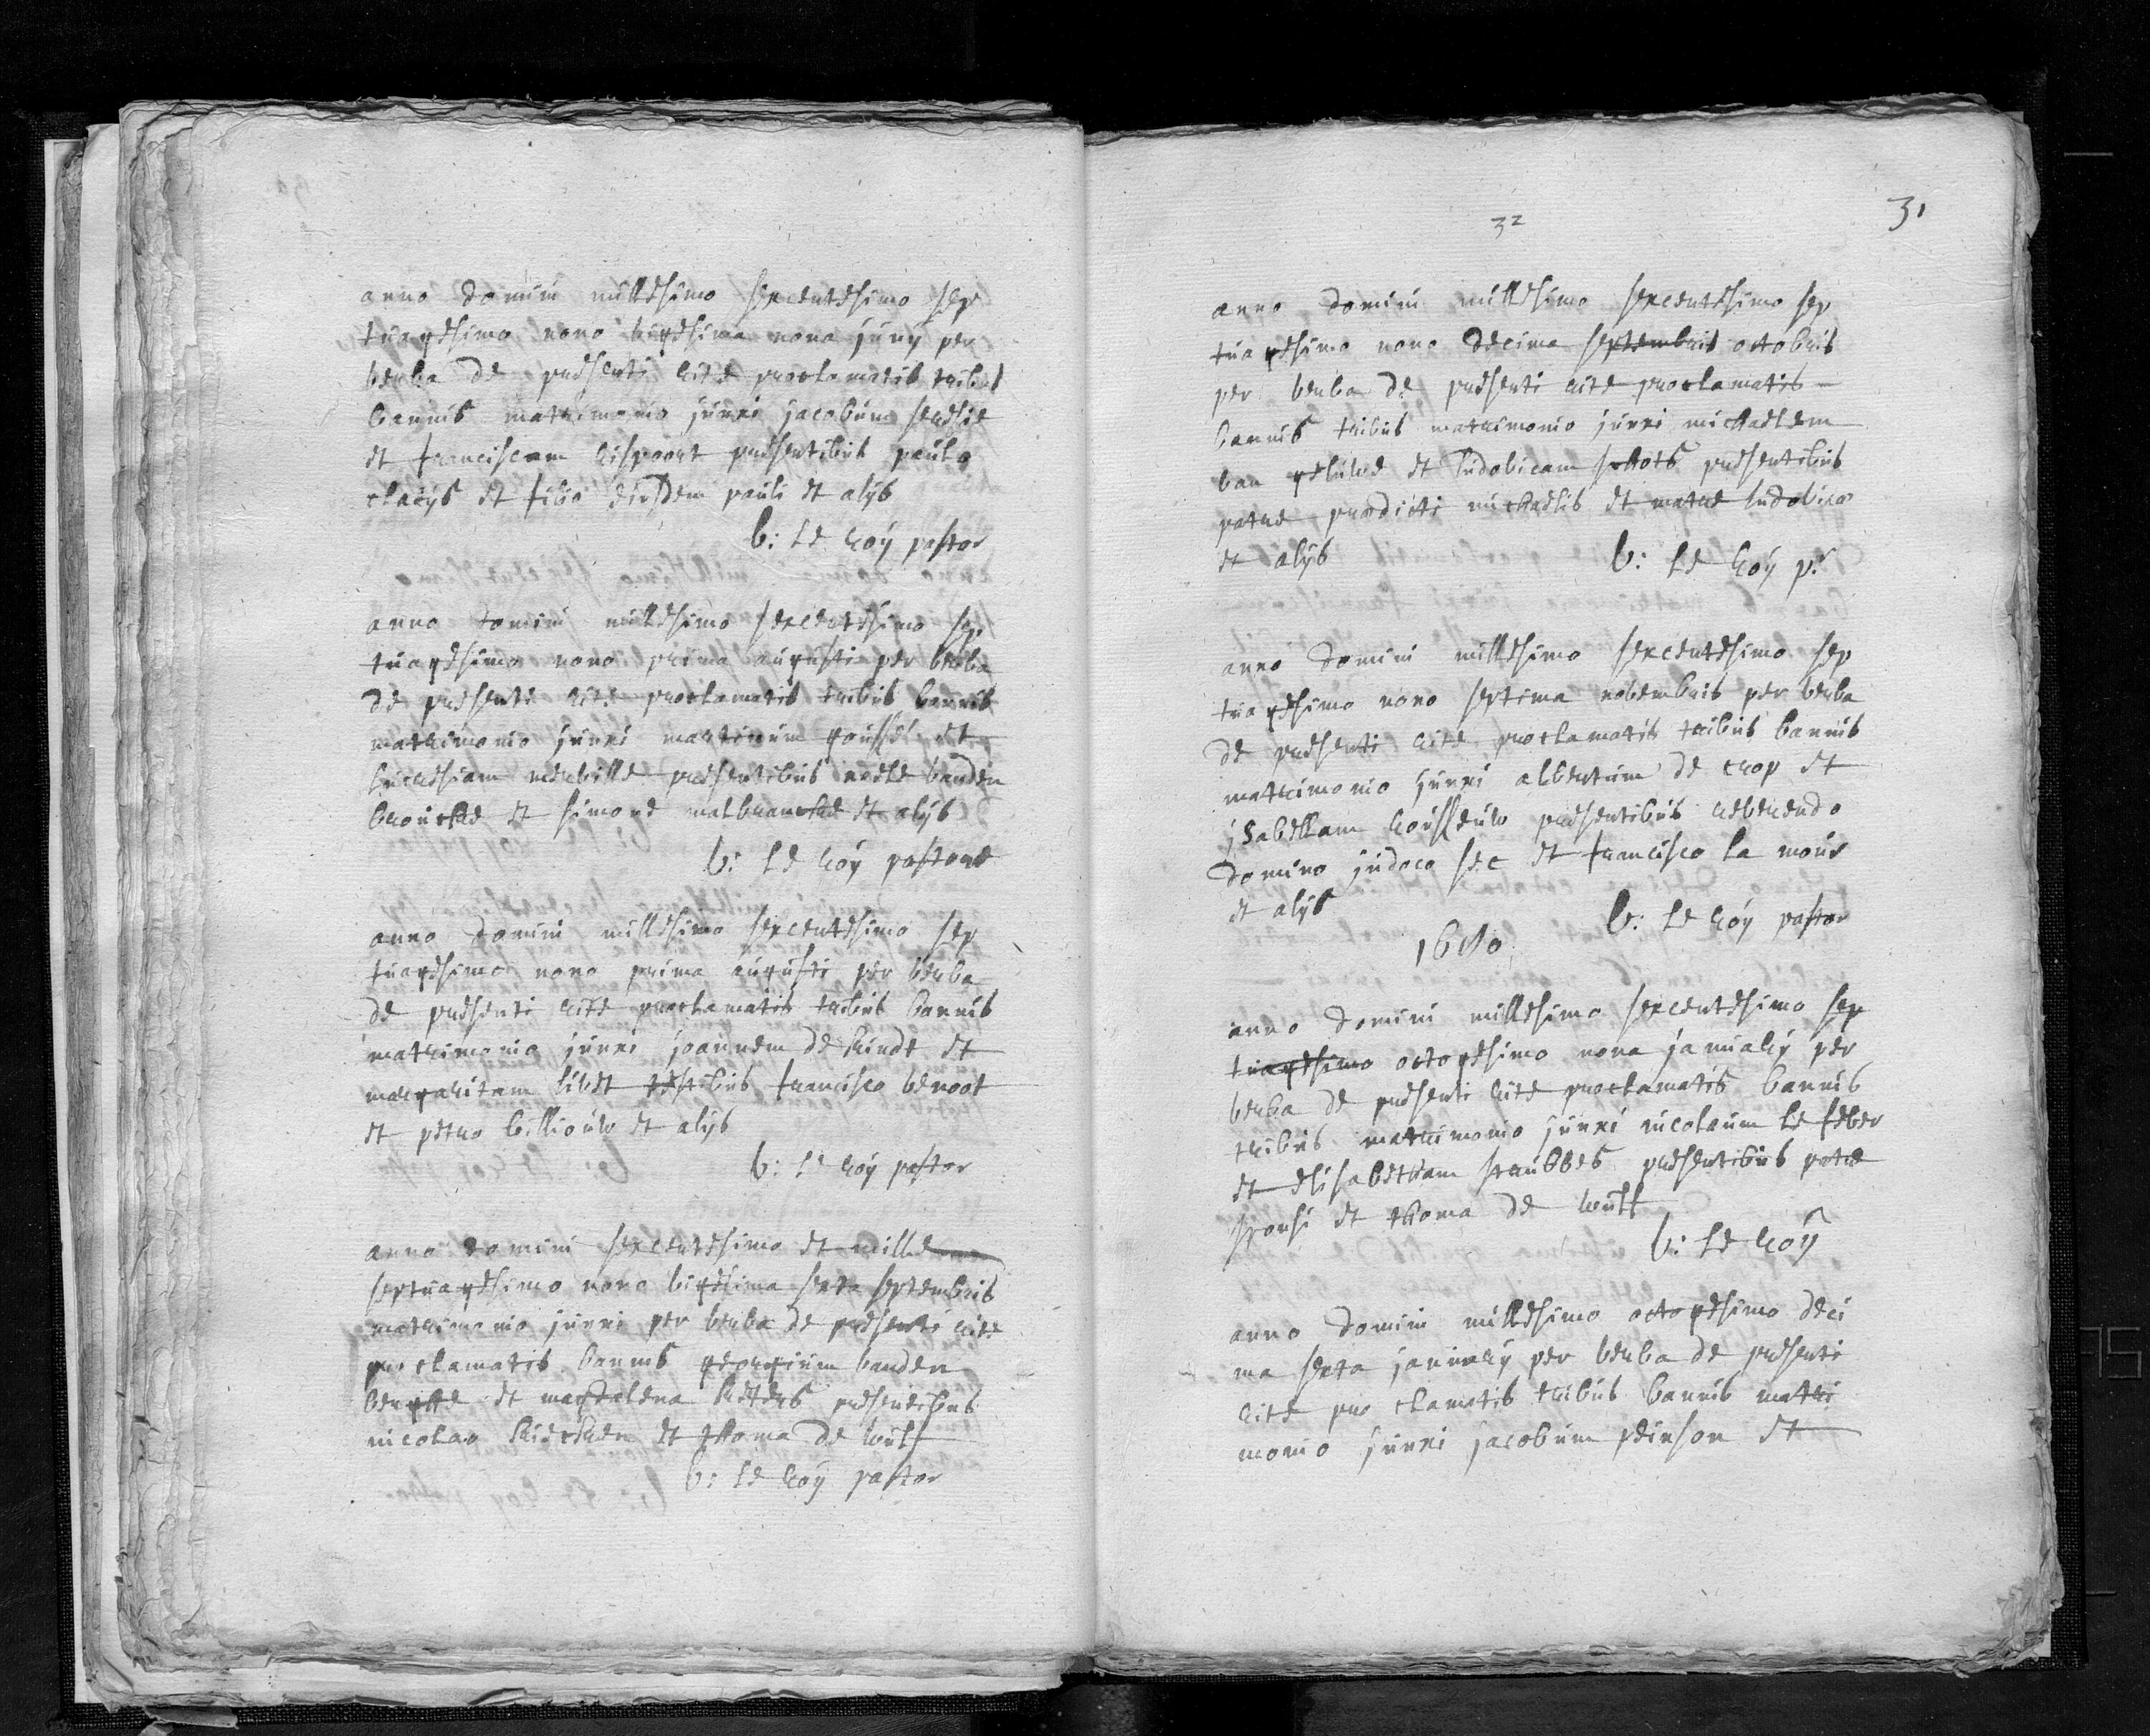 anno domini millesimo sexcentesimo sep
tuagesimo nono vigesima nona junÿ per
verba de presenti rite proclamatis tribus
bannis matrimonio junxi jacobum
et franciscam rispoort presentibus paulo
claeÿs et filio eiusdem pauli et alÿs
b: le roÿ pastor
anno domini millesimo sexcentesimo sep
tuagesimo nono prima augusti per verba
de presenti rite proclamatis tribus bannis
matrimonio junxi martinum goussei et
merville presentibus vanden
broucke et simone malbrancke et alÿs
b: le roÿ pastore
anno domini millesimo sexcentesimo sep
tuagesimo nono prima augusti per verba
de presenti rite proclamatis tribus bannis
matrimonio junxi joannem de kindt et
margaritam livet testibus francisco benoot
et petro billiouw et alÿs
b: le roÿ pastor
anno domini sexcentesimo et mille
septuagesimo nono vigesima sexta septembris
matrimonio junxi per verba de presenti rite
proclamatis bannis georgium vanden
berghe et magdalena presentibus
nicolao kiecken et thoma de wulf
b: le roÿ pastor
32
31
anno domini millesimo sexcentesimo sep
tuagesimo nono decima septembris octobris
per verba de presenti rite proclamatis
bannis tribus matrimonio junxi michaelem
van geluwe et ludovicam schots presentibus
patre praedicti michaelis et matre ludovicae
et alÿs
b: le roÿ p:
anno domini millesimo sexcentesimo sep
tuagesimo nono septima novembris per verba
de presenti rite proclamatis tribus bannis
matrimonio junxi albertum de crop et
jsabellam rousseuw presentibus reverendo
domino judoco sec et francisco la mour
et alÿs
b: le roÿ pastor
1680
anno domini millesimo sexcentesimo sep
tuagesimo octogesimo nona januarÿ per
verba de presenti rite proclamatis bannis
tribus matrimonio junxi nicolaum le feber
et elisabetham strubbes presentibus patre
sponsi et thoma de wulf
b: le roÿ
anno domini millesimo octogesimo deci
ma sexta januarÿ per verba de presenti
rite pro clamatis tribus bannis matri
monio junxi jacobum peinson et